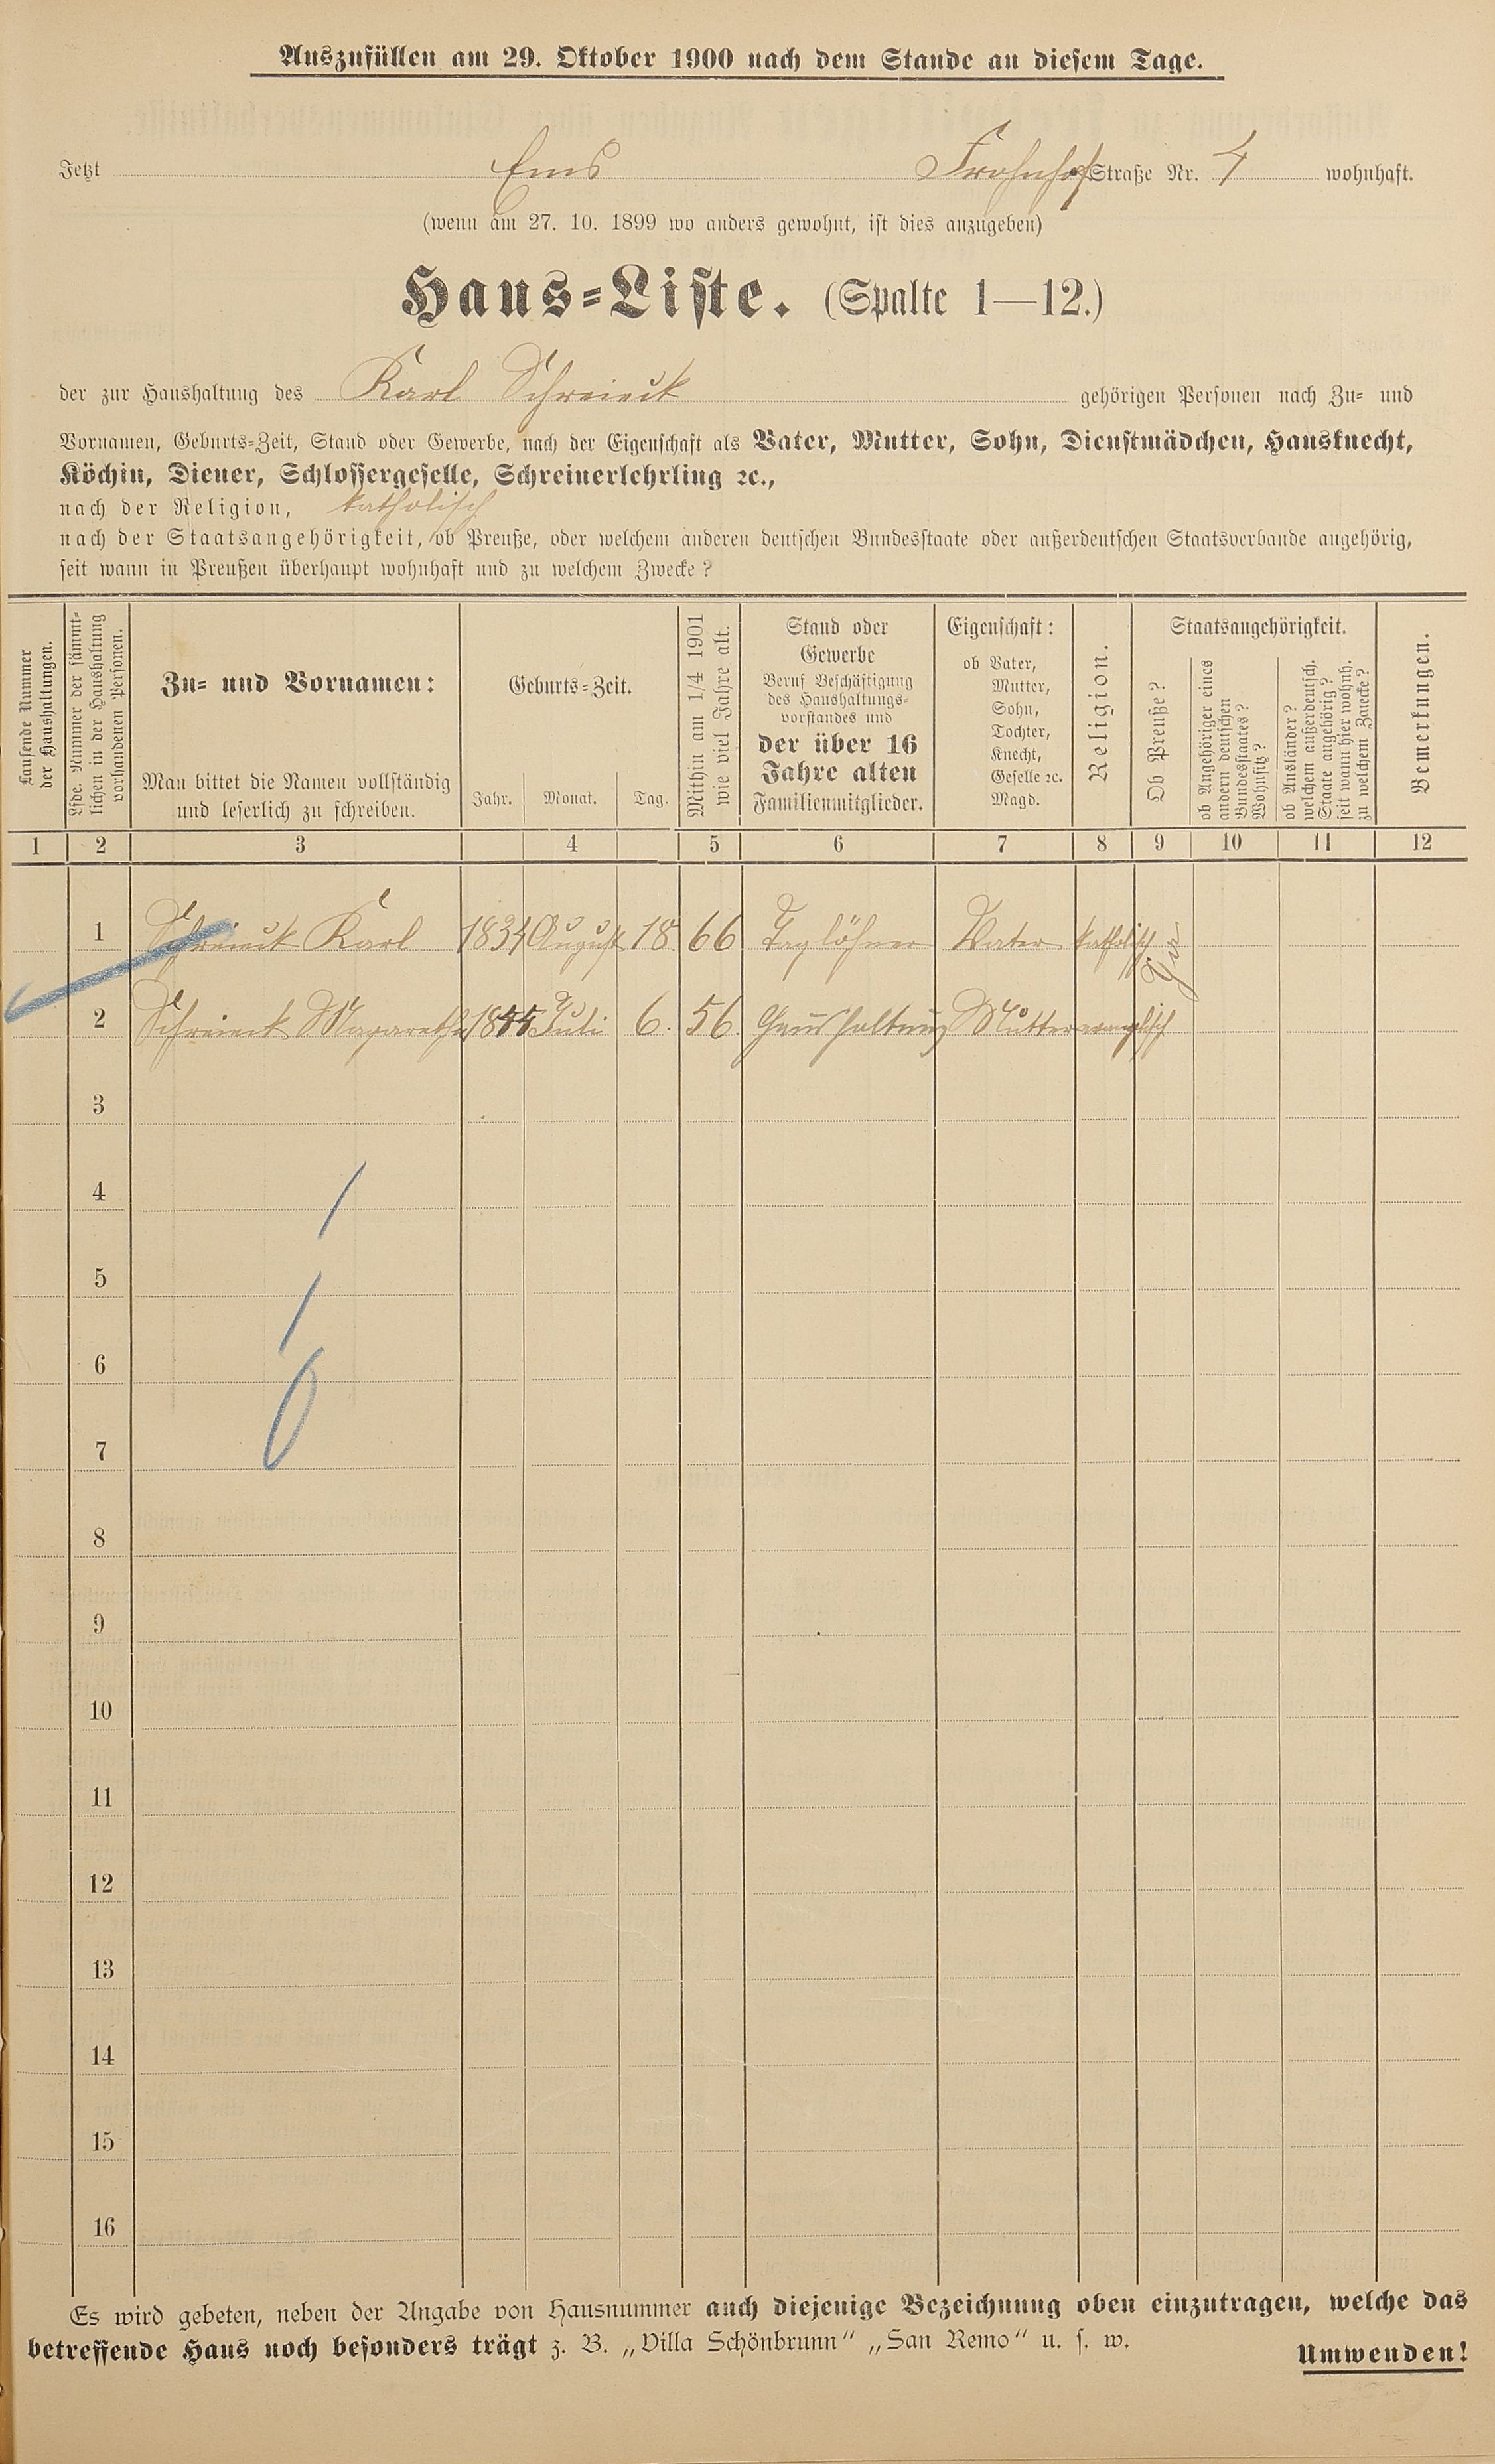 Auszufüllen am 29. Oktober 1900 nach dem Stande an diesem Tage.
Jetzt Ems Frohnhof Straße Nr. 4 wohnhaft.
(wenn am 27. 10. 1899 wo anders gewohnt, ist dies anzugeben)
Haus-Liste. (Spalte 1—12.)
der zur Haushaltung des Karl Schreieck gehörigen Personen nach Zu- und
Vornamen, Geburts-Zeit, Stand oder Gewerbe, nach der Eigenschaft als Vater, Mutter, Sohn, Dienstmädchen, Hausknecht,
Köchin, Diener, Schlossergeselle, Schreinerlehrling ꝛc.,
nach der Religion, katholisch
nach der Staatsangehörigkeit, ob Preuße, oder welchem anderen deutschen Bundesstaate oder außerdeutschen Staatsverbande angehörig,
seit wann in Preußen überhaupt wohnhaft und zu welchem Zwecke?
Laufende Nummer
der Haushaltungen.
Lfde. Nummer der sämmt-
lichen in der Haushaltung
vorhandenen Personen.
Zu- und Vornamen:
Man bittet die Namen vollständig
und leserlich zu schreiben.
Geburts-Zeit.
Jahr. Monat. Tag.
Mithin am 1/4 1901
wie viel Jahre alt.
Stand oder
Gewerbe
Beruf Beschäftigung
des Haushaltungs-
vorstandes und
der über 16
Jahre alten
Familienmitglieder.
Eigenschaft:
ob Vater,
Mutter,
Sohn,
Tochter,
Knecht,
Geselle ꝛc.
Magd.
Religion.
Staatsangehörigkeit.
Ob Preuße?
ob Angehöriger eines
andern deutschen
Bundesstaates?
Wohnsitz?
ob Ausländer?
welchem außerdeutsch.
Staate angehörig?
seit wann hier wohnh.
zu welchem Zwecke?
Bemerkungen.
1 2 3 4 5 6 7 8 9 10 11 12
1 Schreieck Karl 1834 August 18 66 Taglöhner Vater katholisch
2 Schreieck Margarethe 1844 Juli 6. 56. Haushaltung Mutter evanglisch
3
4
5
6
7
8
9
10
11
12
13
14
15
16
Es wird gebeten, neben der Angabe von Hausnummer auch diejenige Bezeichnung oben einzutragen, welche das
betreffende Haus noch besonders trägt z. B. „Villa Schönbrunn“ „San Remo“ u. s. w.
Umwenden!